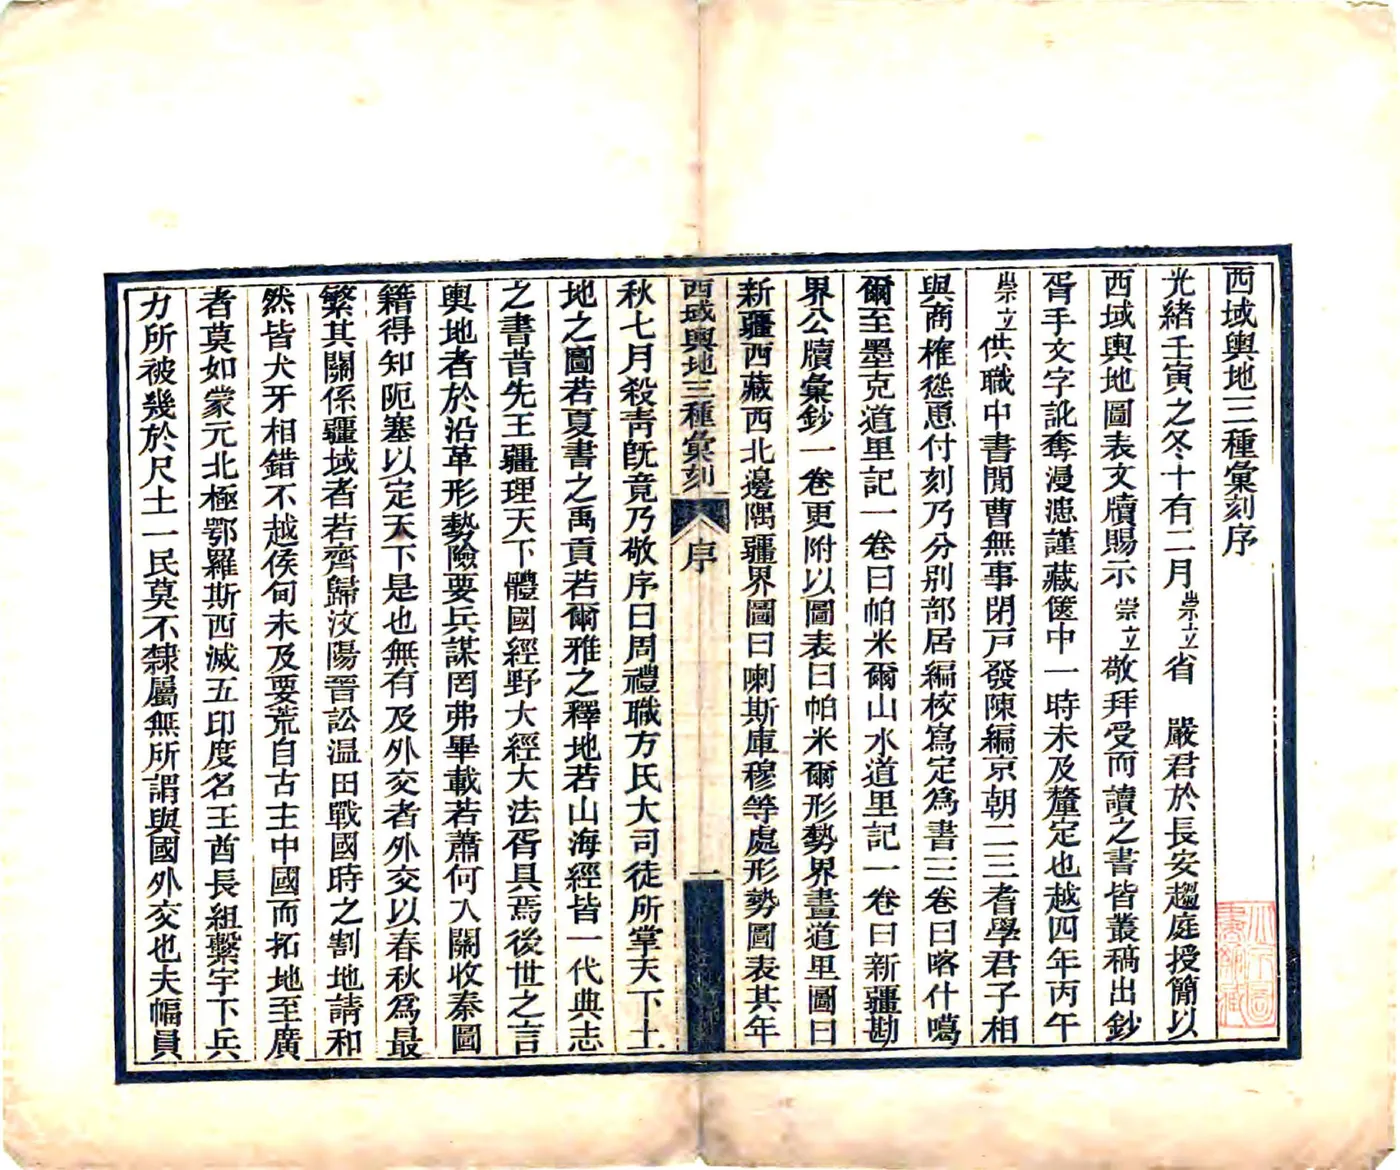 西域輿地三種彙刻序
光緒壬寅之冬十有二月崇立省　嚴君於長安趨庭授簡以
西域輿地圖表文牘賜示崇立敬拜受而讀之書皆叢稿出鈔
胥手文字訛奪漫漶謹藏篋中一時未及釐定也越四年丙午
崇立供職中書閒曹無事閉戸發陳編京朝二三耆學君子相
與商榷慫恿付刻乃分別部居編校寫定為書三卷曰喀什噶
爾至墨克道里記一卷曰帕米爾山水道里記一卷曰新疆勘
界公牘彙鈔一卷更附以圖表曰帕米爾形勢界畫道里圖曰
新疆西藏西北邊隅疆界圖曰喇斯庫穆等處形勢圖表其年
西域輿地三種彙刻
序
一
秋七月殺靑旣竟乃敬序曰周禮職方氏大司徒所掌天下土
地之圖若夏書之禹貢若爾雅之釋地若山海經皆一代典志
之書昔先王疆理天下體國經野大經大法胥具焉後世之言
輿地者於沿革形勢險要兵謀罔弗畢載若蕭何入關收秦圖
籍得知阨塞以定天下是也無有及外交者外交以春秋為最
繁其關係疆域者若齊歸汶陽晉訟温田戰國時之割地請和
然皆犬牙相錯不越侯甸未及要荒自古主中國而拓地至廣
者莫如蒙元北極鄂羅斯西滅五印度名王酋長組繫宇下兵
力所被幾於尺土一民莫不隸屬無所謂與國外交也夫幅員